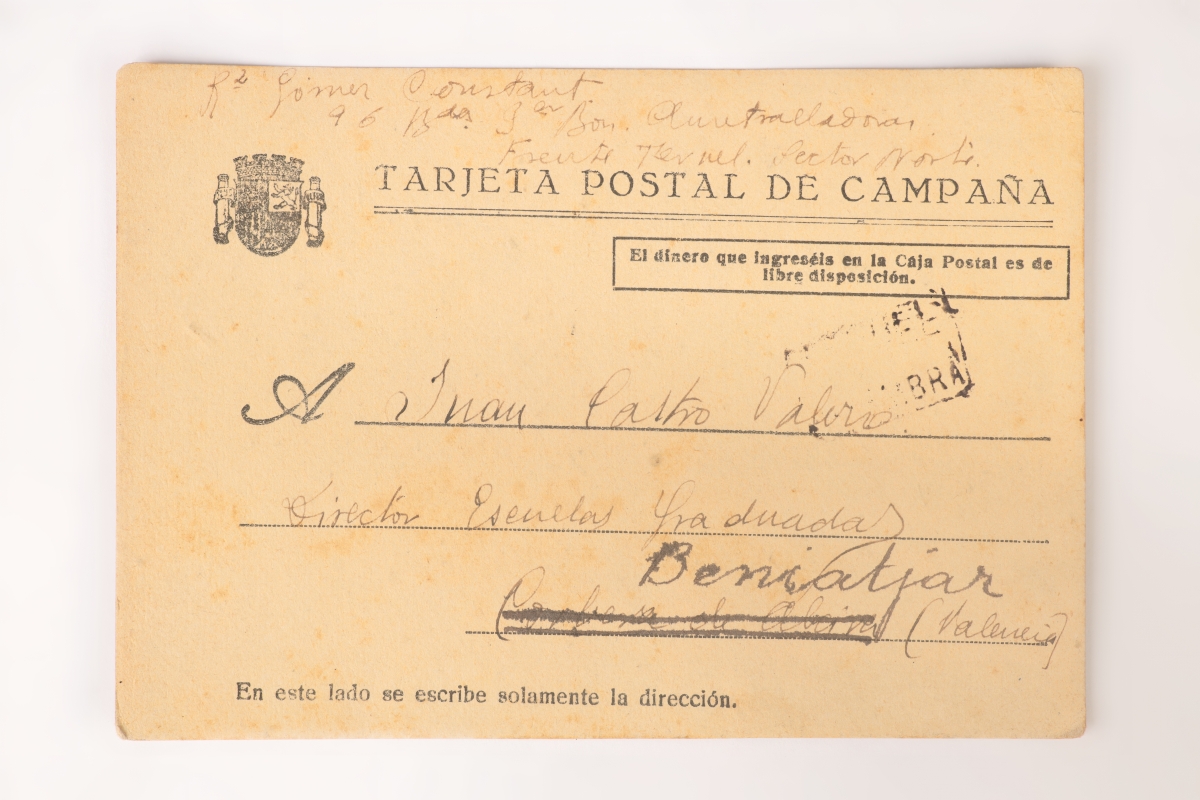 Rte Gómez Constant
96 Bda. 3er Bon. Ametralladoras
Frente Teruel. Sector Norte.
TARJETA POSTAL DE CAMPAÑA
El dinero que ingreséis en la Caja Postal es de
libre disposición.
A Juan Castro Valero
Director Escuelas Graduadas
Beniatjar
de (Valencia)
En este lado se escribe solamente la dirección.